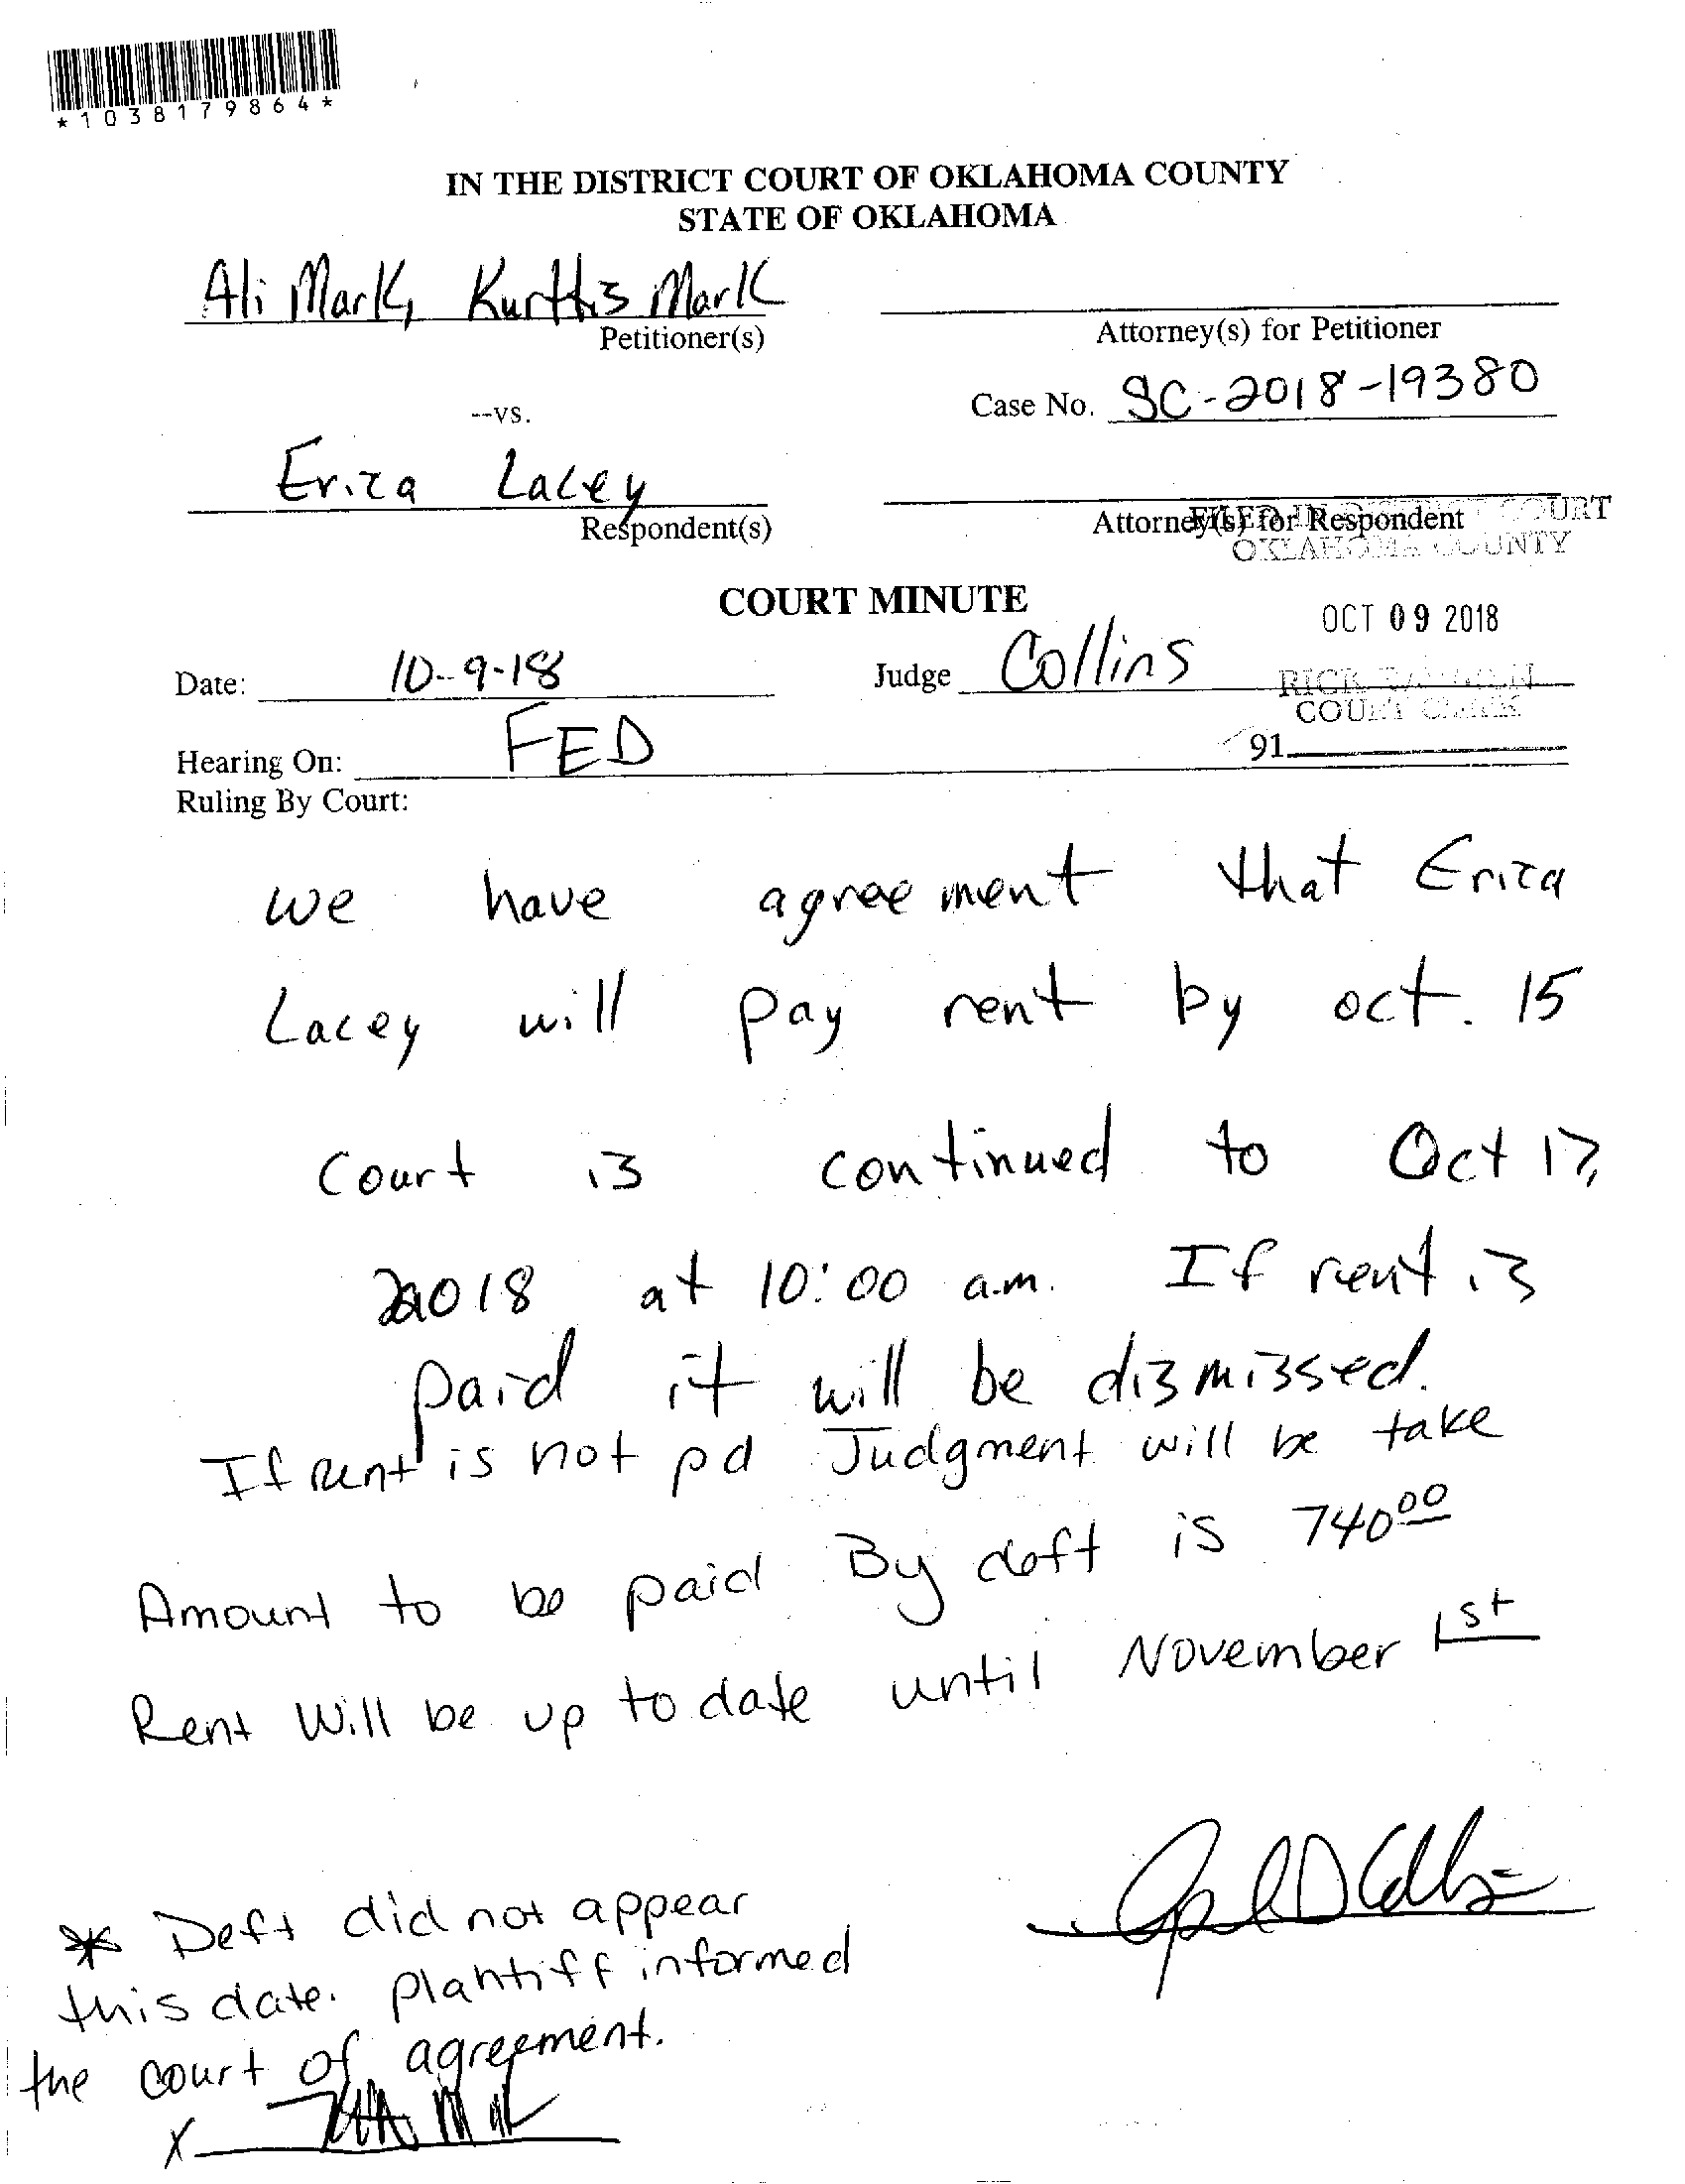 *1038179864*
IN THE DISTRICT COURT OF OKLAHOMA COUNTY
STATE OF OKLAHOMA
Ali Mark, Kurttis Mark
Petitioner(s)
Attorney(s) for Petitioner
--vs.
Case No. SC-2018-19380
Erica Lacey
Respondent(s)
Attorney(s) for Respondent
FILED IN DISTRICT COURT
OKLAHOMA COUNTY
COURT MINUTE
OCT 09 2018
Date: 10-9-18
Judge Collins
RICK
COURT CLERK
Hearing On: FED
91
Ruling By Court:
we have agreement that Erica
Lacey will pay rent by oct. 15
Court is continued to Oct 17,
2018 at 10:00 a.m. If rent is
paid it will be dismissed.
If rent is not pd Judgment will be take
Amount to be paid By deft is 740.00
Rent Will be up to date until November 1st
* Deft did not appear
this date. plantiff informed
the court of agreement.
X